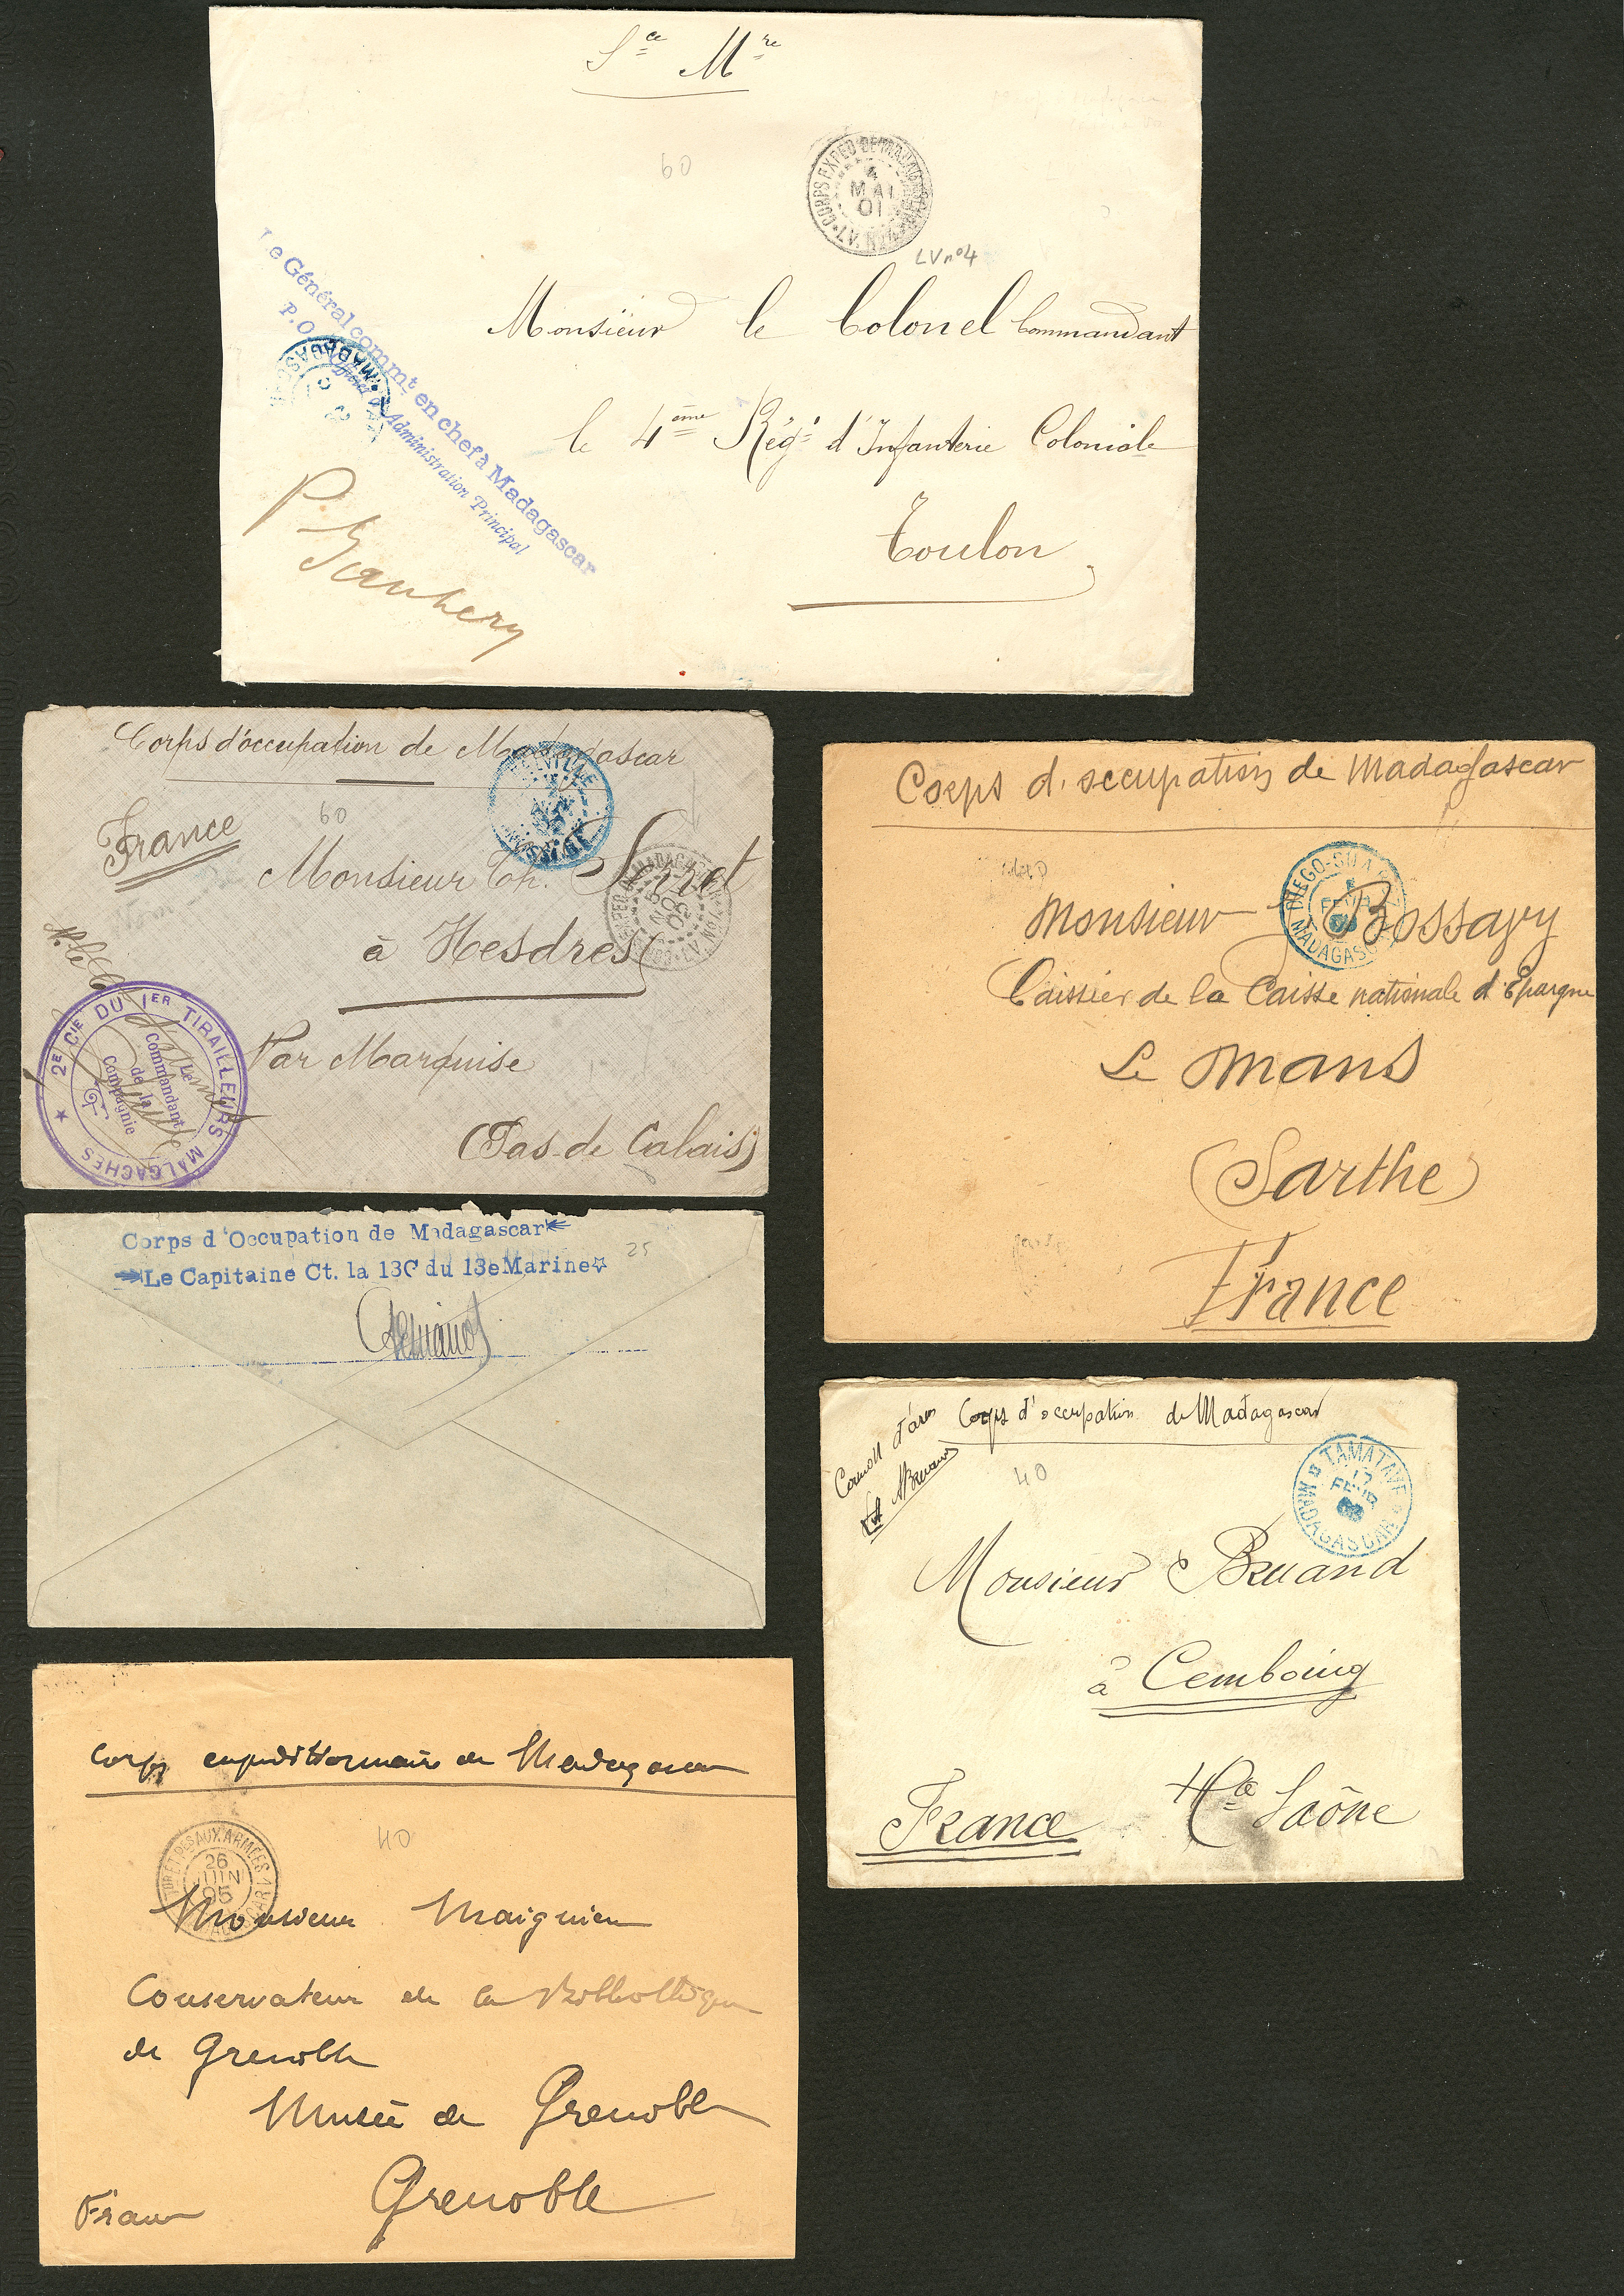 Sce Mre
60
CORPS EXPED DE MADAGASCAR
4
MAI
01
LV n°4
Le Général commt en chef à Madagascar
P.O.
Officier d'Administration Principal
MADAGASCAR
Monsieur le Colonel Commandant
le 4ème Régt d'Infanterie Coloniale
Toulon
Corps d'occupation de Madagascar
France
60
Monsieur Ch.
à
Par Marquise
(Pas-de Calais)
2E CIE DU 1ER TIRAILLEURS MALGACHES
Le
Commandant
de la
Compagnie
Corps d'occupation de Madagascar
DIEGO-SUAREZ
FEVR
MADAGASCAR
Monsieur Bossavy
Caissier de la Caisse nationale d'Epargne
Le Mans
(Sarthe)
France
Corps d'Occupation de Madagascar
25
Le Capitaine Ct. la 13C du 13e Marine
Corps d'occupation de Madagascar
40
TAMATAVE
FEVR
MADAGASCAR
Monsieur Bruand
à Cemboing
Hte Saône
France
Corps expéditionnaire de Madagascar
40
TOR ET POSTES AUX ARMEES
26
JUIN
95
Monsieur Maignien
Conservateur de la Bibliothèque
de Grenoble
Musée de Grenoble
Grenoble
France